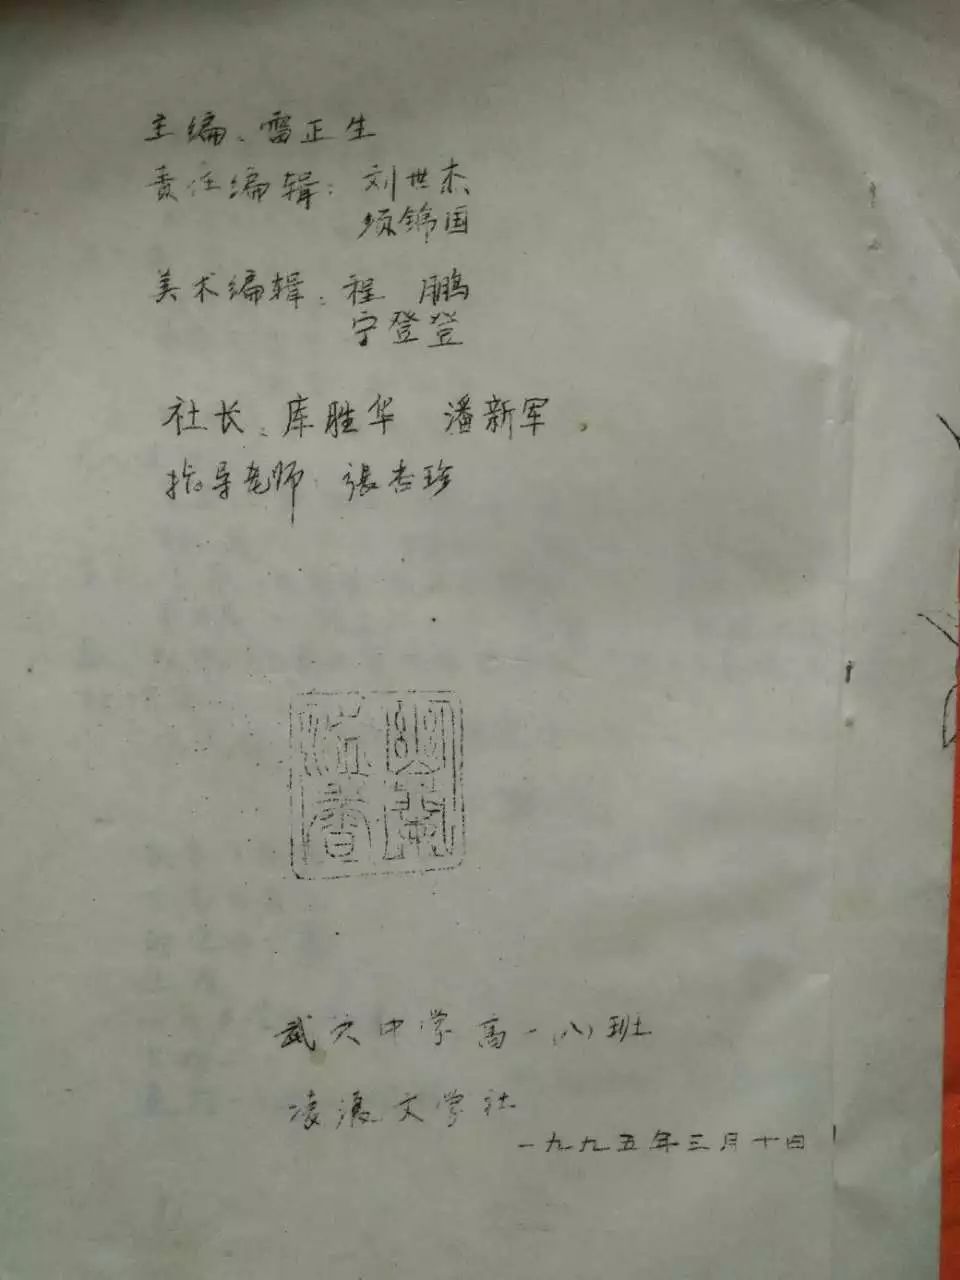 主编：雷正生
责任编辑：刘世杰
项锦国
美术编辑：程 鹏
宁登登
社长：库胜华 潘新军
指导老师：張杏珍
幽蘭
香
武穴中学高一八班
凌浪文学社
一九九五年三月十日